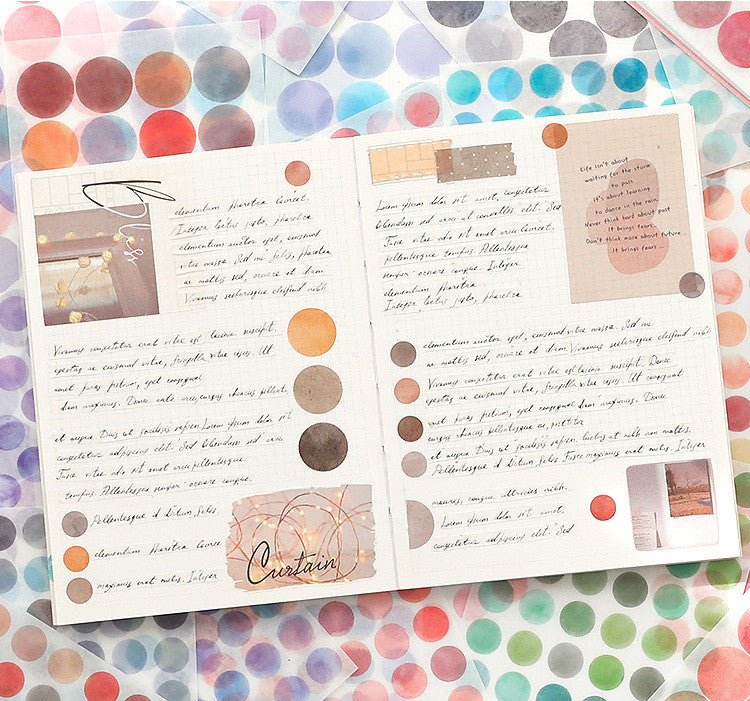 elementum pharetra laoreet.
Integer lectus justo, pharetra
elementum auctor eget, euismod
vitae massa. Sed mi felis, pharetra
ac mattis sed, ornare et diam.
Vivamus scelerisque eleifend nibh
Vivamus consectetur erat vitae est lacinia suscipit.
egestas ac euismod vitae, fringilla vitae risus. Ut
amet purus pretium, eget consequat
diam maximus. Donec ante arcu, cursus rhoncus pellent.
et augue Duis ut facilisis sapien. Lorem ipsum dolor sit
consectetur adipiscing elit. Sed blandum sed arcu
Fusce vitae odio sit amet arcu pellentesque
tempus. Pellentesque semper ornare congue.
Pellentesque a Dictum felis.
elementum pharetra laoreet
maximus erat metus. Integer
Curtain
Lorem ipsum dolor sit amet, consectetur
blandum sed arcu at convallis elit. Sed
Fusce vitae odio sit amet arcu laoreet.
pellentesque tempus. Pellentesque
semper ornare congue. Integer
elementum pharetra
Integer lectus justo, pharetra
Life isn't about
waiting for the storm
to pass
it's about learning
to dance in the rain.
Never think hard about past
It brings tears...
Don't think more about future
It brings fears...
elementum auctor eget, euismod vitae massa. Sed mi
ac mattis sed, ornare et diam. Vivamus scelerisque eleifend nibh
Vivamus consectetur erat vitae est lacinia suscipit. Donec
egestas ac euismod vitae, fringilla vitae risus. Ut consequat
amet purus pretium, eget consequat diam maximus. Donec
cursus rhoncus pellentesque ac,
et augue Duis ut facilisis sapien. lectus at nibh non mattis.
Pellentesque a Dictum felis. Fusce maximus erat metus. Integer
mauris, congue ultricies nibh.
Lorem ipsum dolor sit amet.
consectetur adipiscing elit. Sed